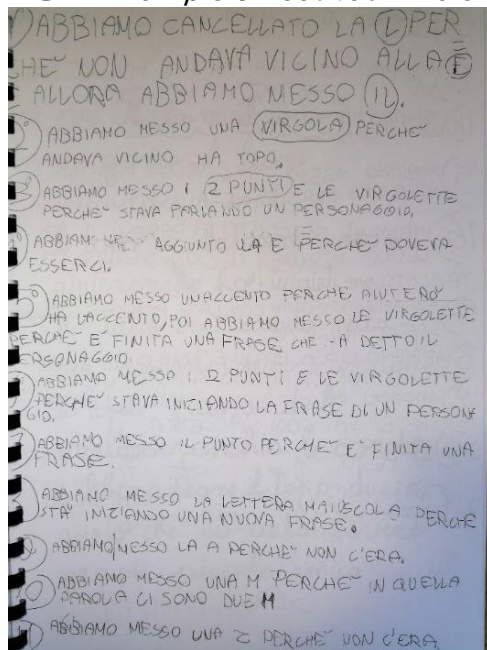 1) ABBIAMO CANCELLATO LA L PER
CHE' NON ANDAVA VICINO ALLA E
E ALLORA ABBIAMO MESSO IL.
2) ABBIAMO MESSO UNA VIRGOLA PERCHE'
ANDAVA VICINO HA TOPO.
3) ABBIAMO MESSO I 2 PUNTI E LE VIRGOLETTE
PERCHE' STAVA PARLANDO UN PERSONAGGIO.
4) ABBIAMO AGGIUNTO LA E PERCHE' DOVEVA
ESSERCI.
5) ABBIAMO MESSO UNACCENTO PERCHE AIUTERO'
HA LACCENTO, POI ABBIAMO MESSO LE VIRGOLETTE
PERCHE' E' FINITA UNA FRASE CHE HA DETTO IL
PERSONAGGIO.
6) ABBIAMO MESSO I 2 PUNTI E LE VIRGOLETTE
PERCHE' STAVA INIZIANDO LA FRASE DI UN PERSONAG
GIO.
7) ABBIAMO MESSO IL PUNTO PERCHE' E' FINITA UNA
FRASE.
8) ABBIAMO MESSO LA LETTERA MAIUSCOLA PERCHE
STA' INIZIANDO UNA NUOVA FRASE.
9) ABBIAMO MESSO LA A PERCHE' NON C'ERA.
10) ABBIAMO MESSO UNA M PERCHE' IN QUELLA
PAROLA CI SONO DUE M
11) ABBIAMO MESSO UNA Z PERCHE' NON C'ERA.